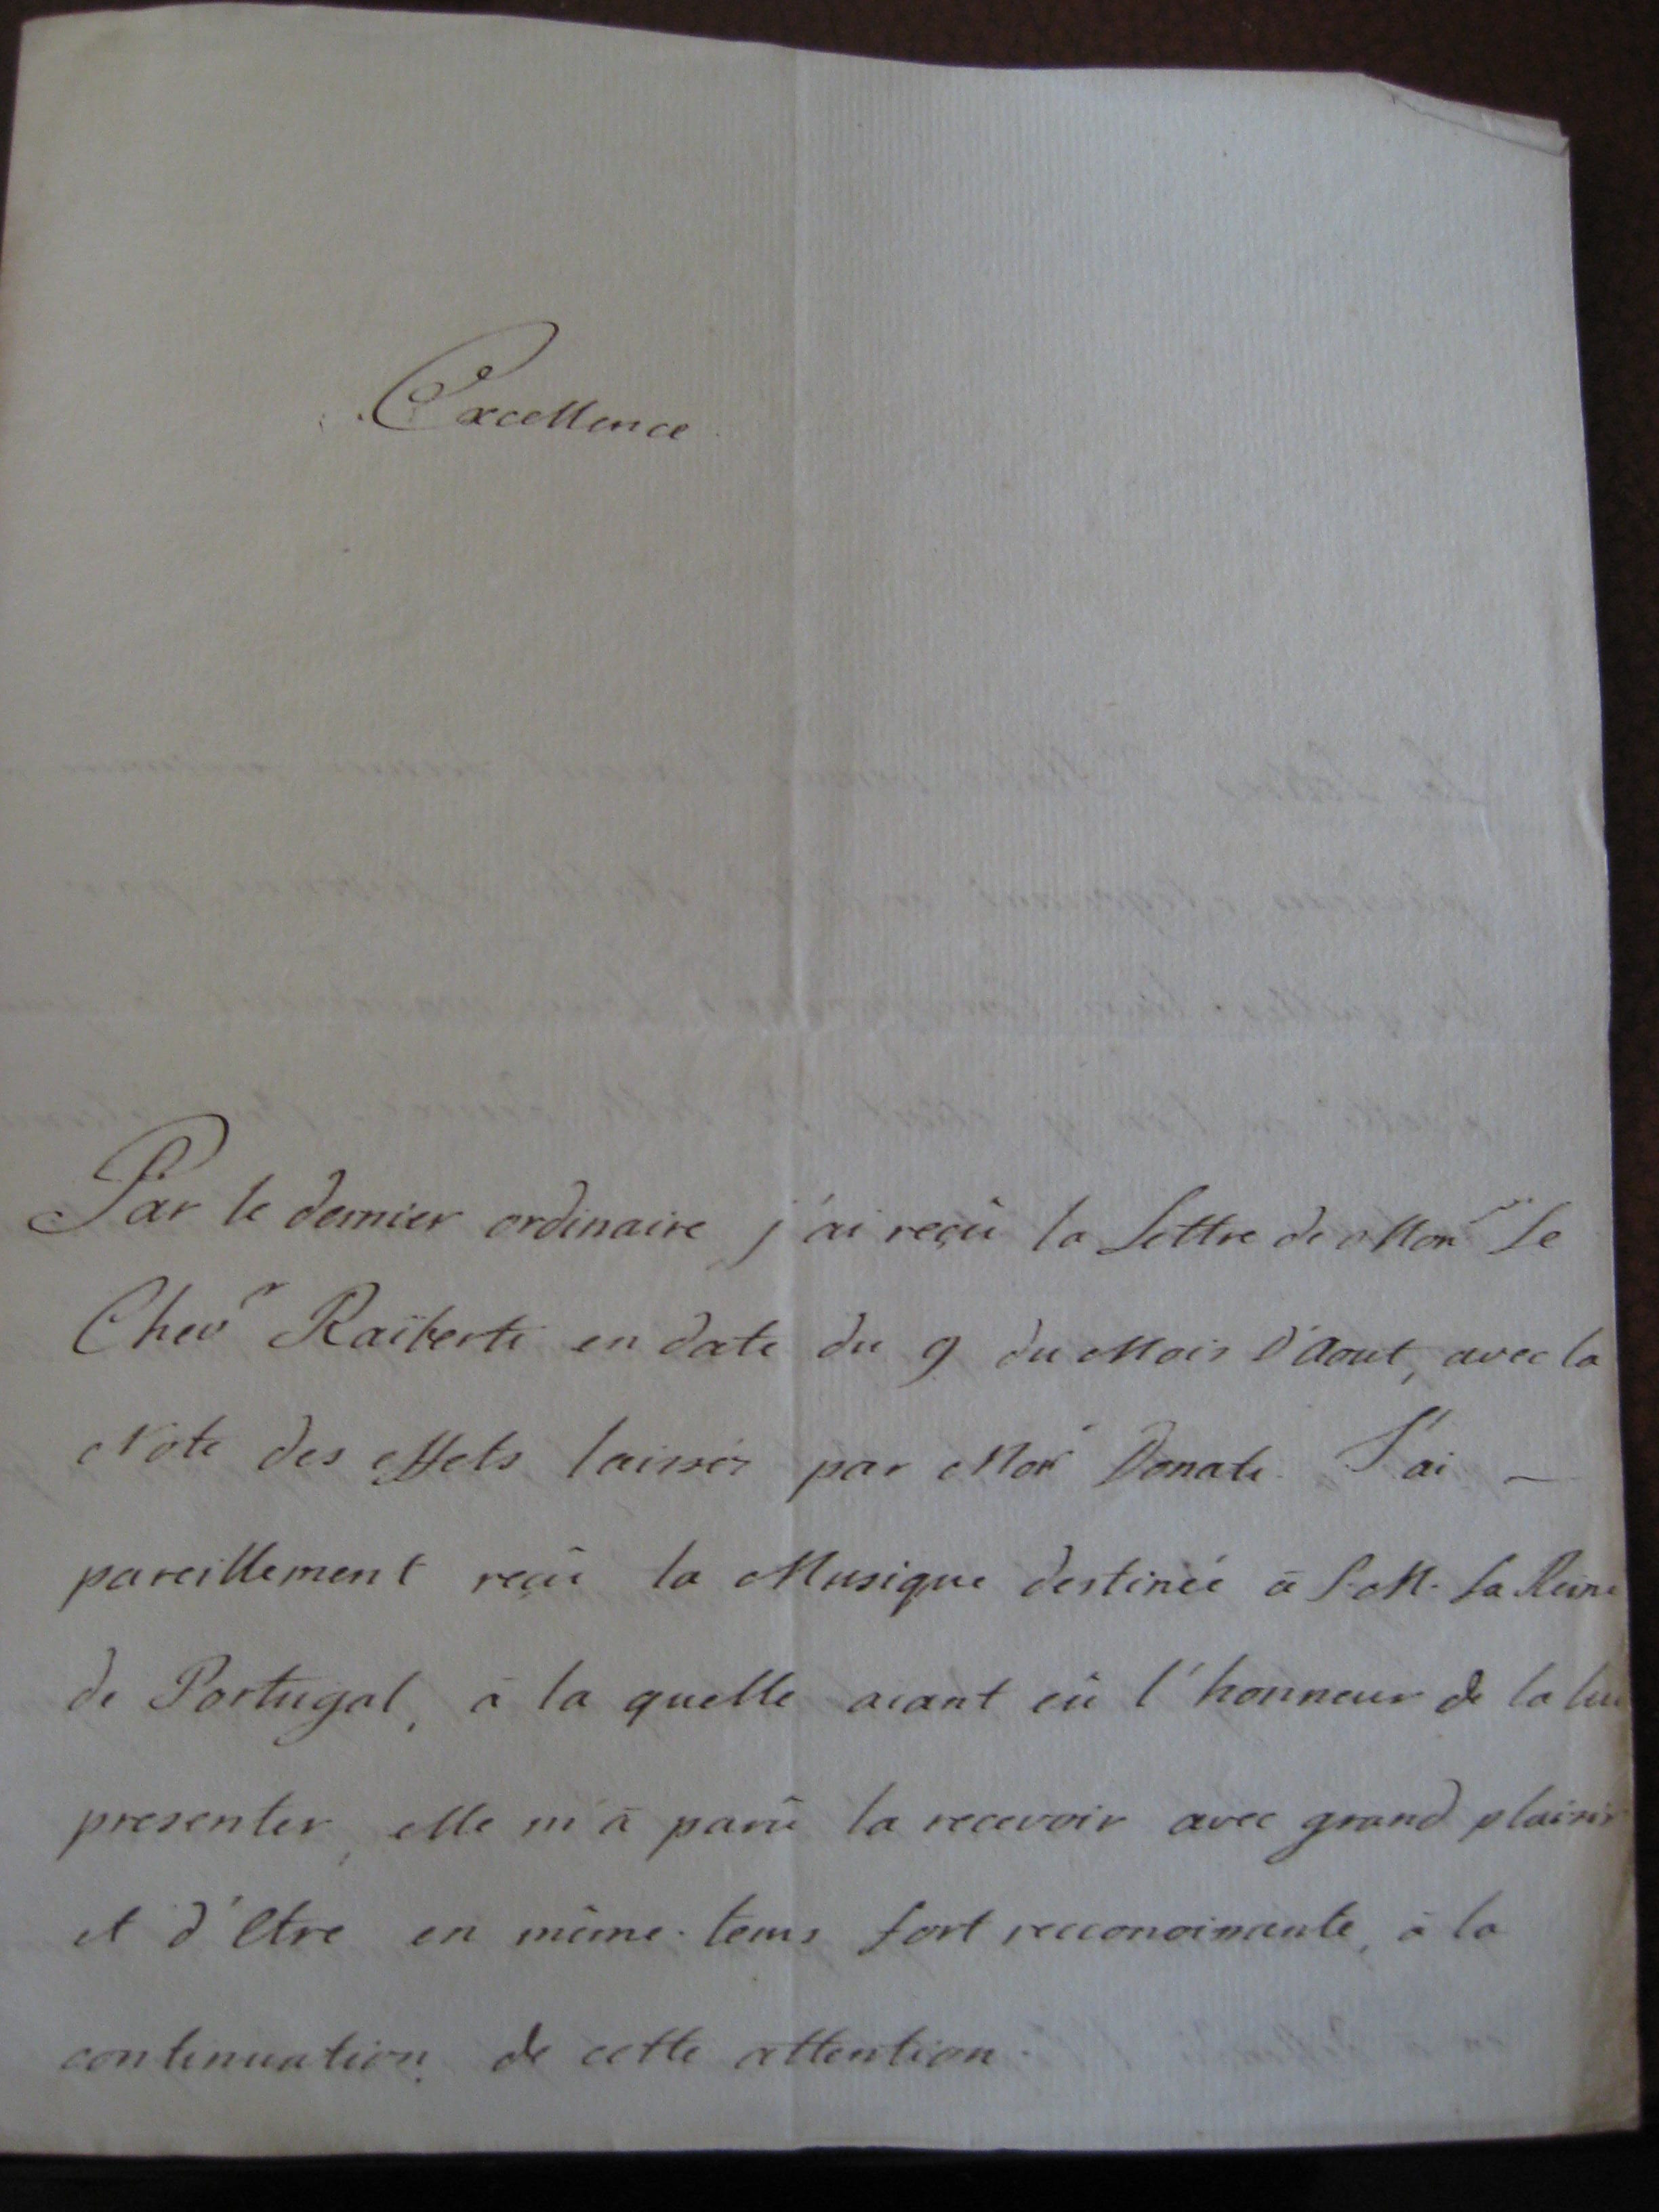 Excellence
Par le dernier ordinaire j'ai reçû la Lettre de Mon.r Le
Chev.r Raïberti en date du 9 du Mois d'Aout, avec la
Note des effets laissés par Mon.r Donati. J'ai —
pareillement reçû la Musique destinée à S. M. La Reine
de Portugal, à la quelle aiant eû l'honneur de la lui
presenter, elle m'à parû la recevoir avec grand plaisir
et d'Etre en même tems fort recconoissante, à la
continuation de cette attention.